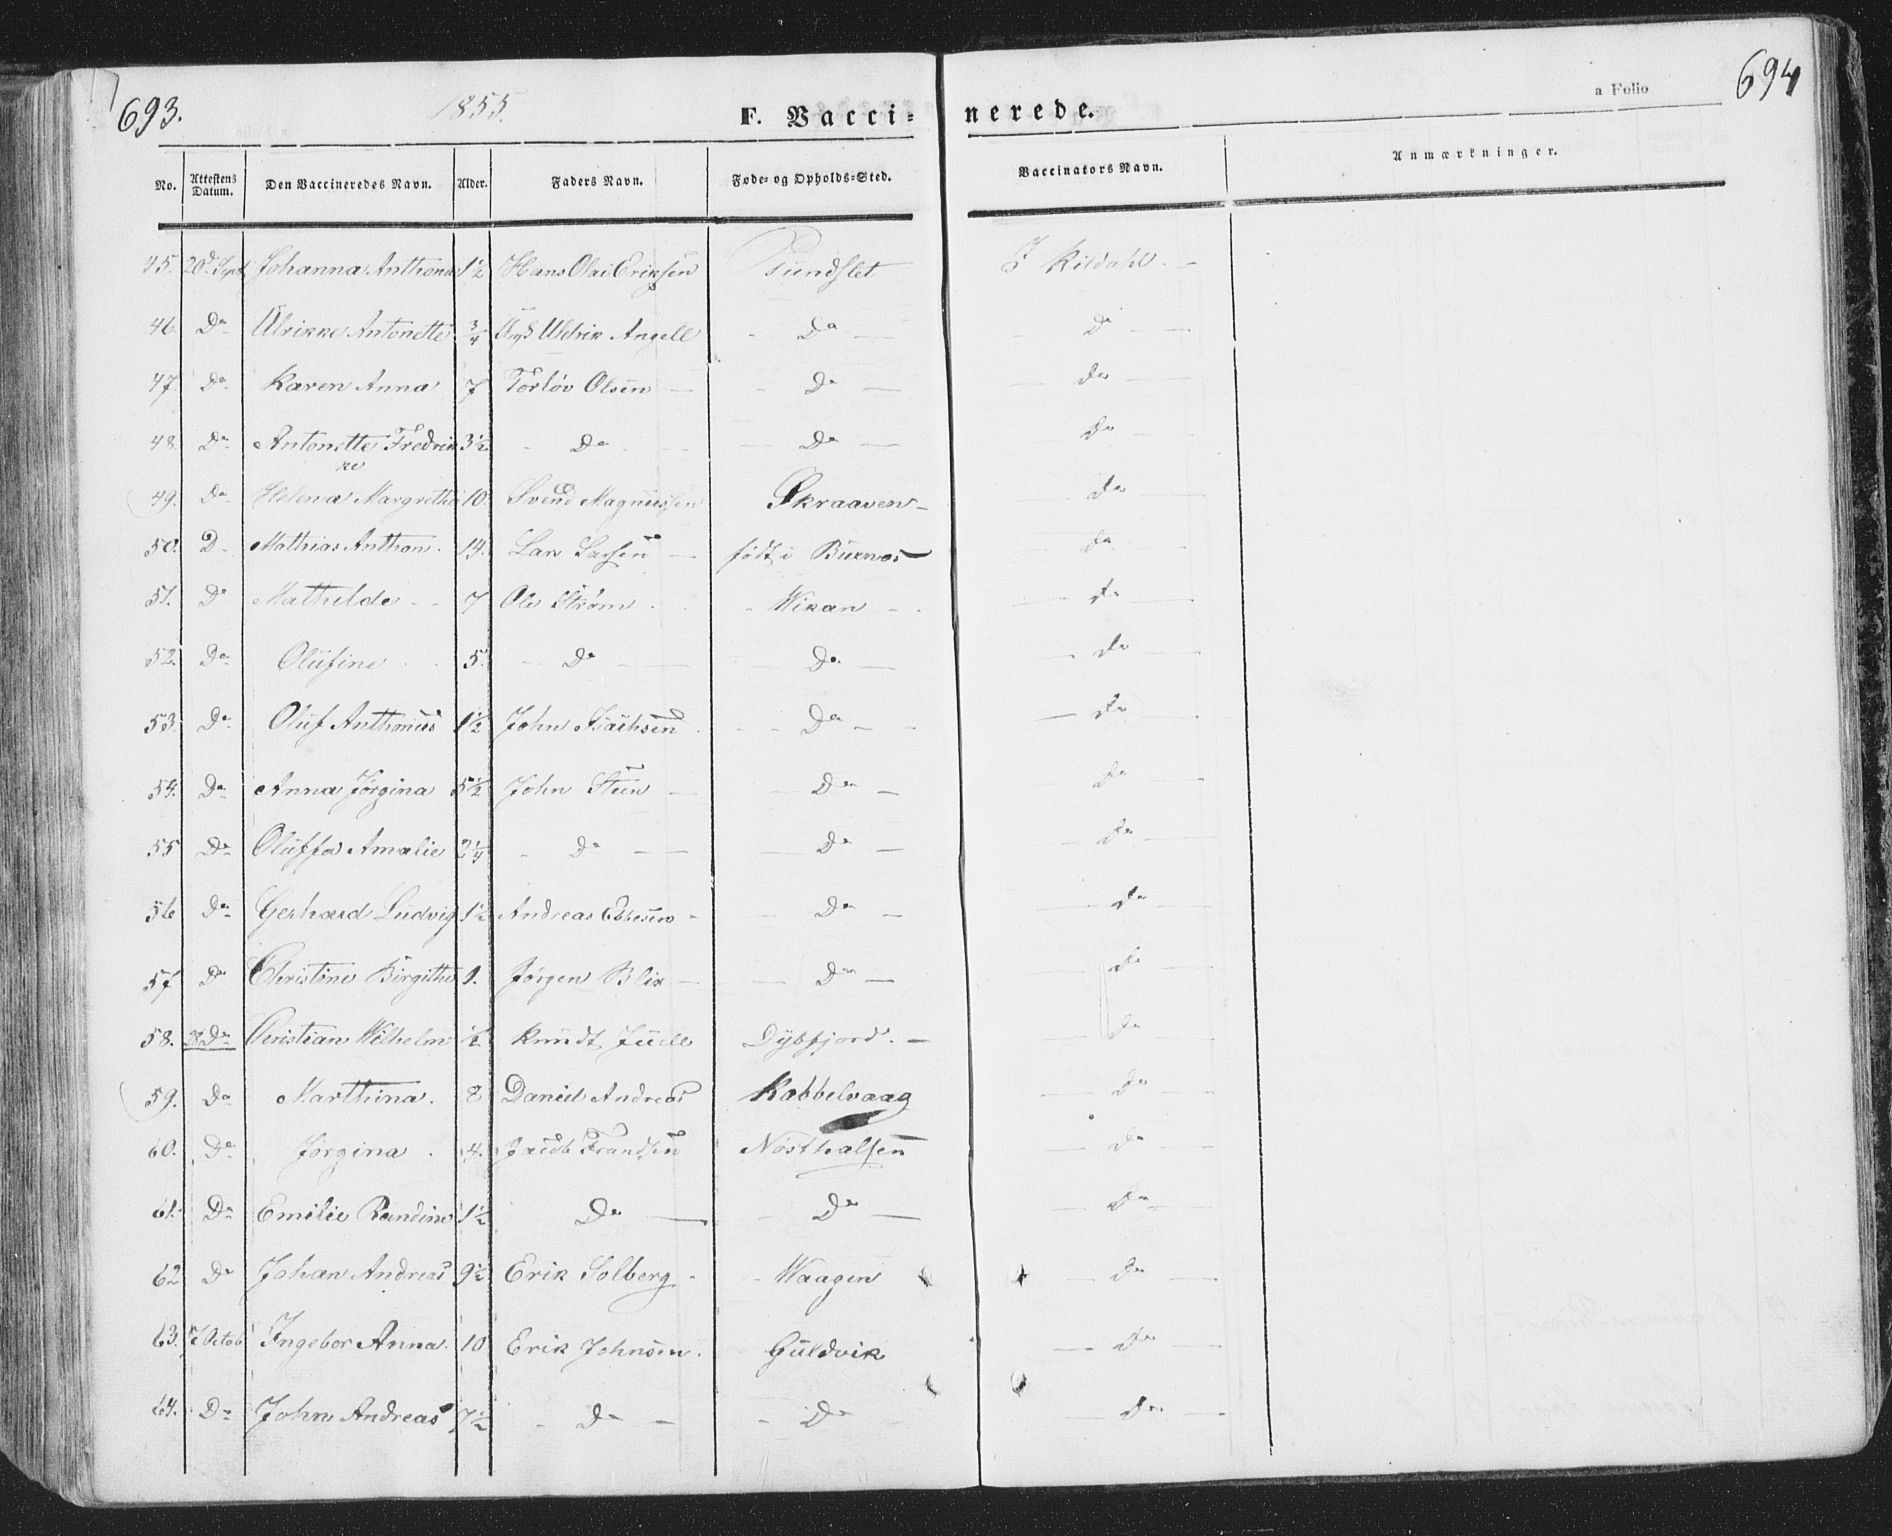 693. 1855. F. Vacci- nerede. a Folio 694
No. Attestens Datum. Den Vaccineredes Navn. Alder. Faders Navn. Føde- og Opholds-Sted. Vaccinators Navn. Anmærkninger.
45. 20d Sept Johanna Anthona 1½ Hans Olai Eriksen Sundslet J Kildahl. -
46 Do Ulrikke Antonette ¾ Uldrik Angell - Do - - Do -
47. Do Karen Anna 7 Torløv Olsen - - Do - - Do -
48. Do Antonette Fredrik 3½ - Do - - Do - Do -
ke
49. Do Helena Margretha 10. Svend Magnussen Skraaven - - Do -
50. D. Mathias Anthon. 14. Lars Larsen - født i - Do -
51. Do Mathilde - - 7 Ole Strøm - Wikan - - Do -
52. Do Olufine 5. - Do - Do - - Do -
53. Do Oluf Anthonius 1½ John Isachsen - - Do - - - Do -
54. Do Anna Jørgina 5½ John Steen - - Do - Do -
55 Do Oluffa Amalie 2¼ - Do - - Do - - Do -
56 Do Gerhard Ludvig 1½ Andreas Ebbesen - - Do - - Do -
57 Do Christine Birgithe 1. Jørgen Blix - - Do - Do -
58. 28 Do Christian Wilhelm ½ Knudt Juell Dybfjord. - - Do -
59. Do Marthina. 8 Daniel Andreas Kobbelvaag - Do -
60. Do Jørgina. 4. Jacob Frandsen Nøsthalsen - Do -
61. Do Emilie Randine 1½ Do - - Do - - Do -
62 Do Johan Andreas 9½ Erik Solberg - - Waagen - Do -
63. 7 Octob Ingebor Anna. 10 Erik Johnsen. Guldvik - Do -
64. Do John Andreas 7½ - Do - - Do - Do -